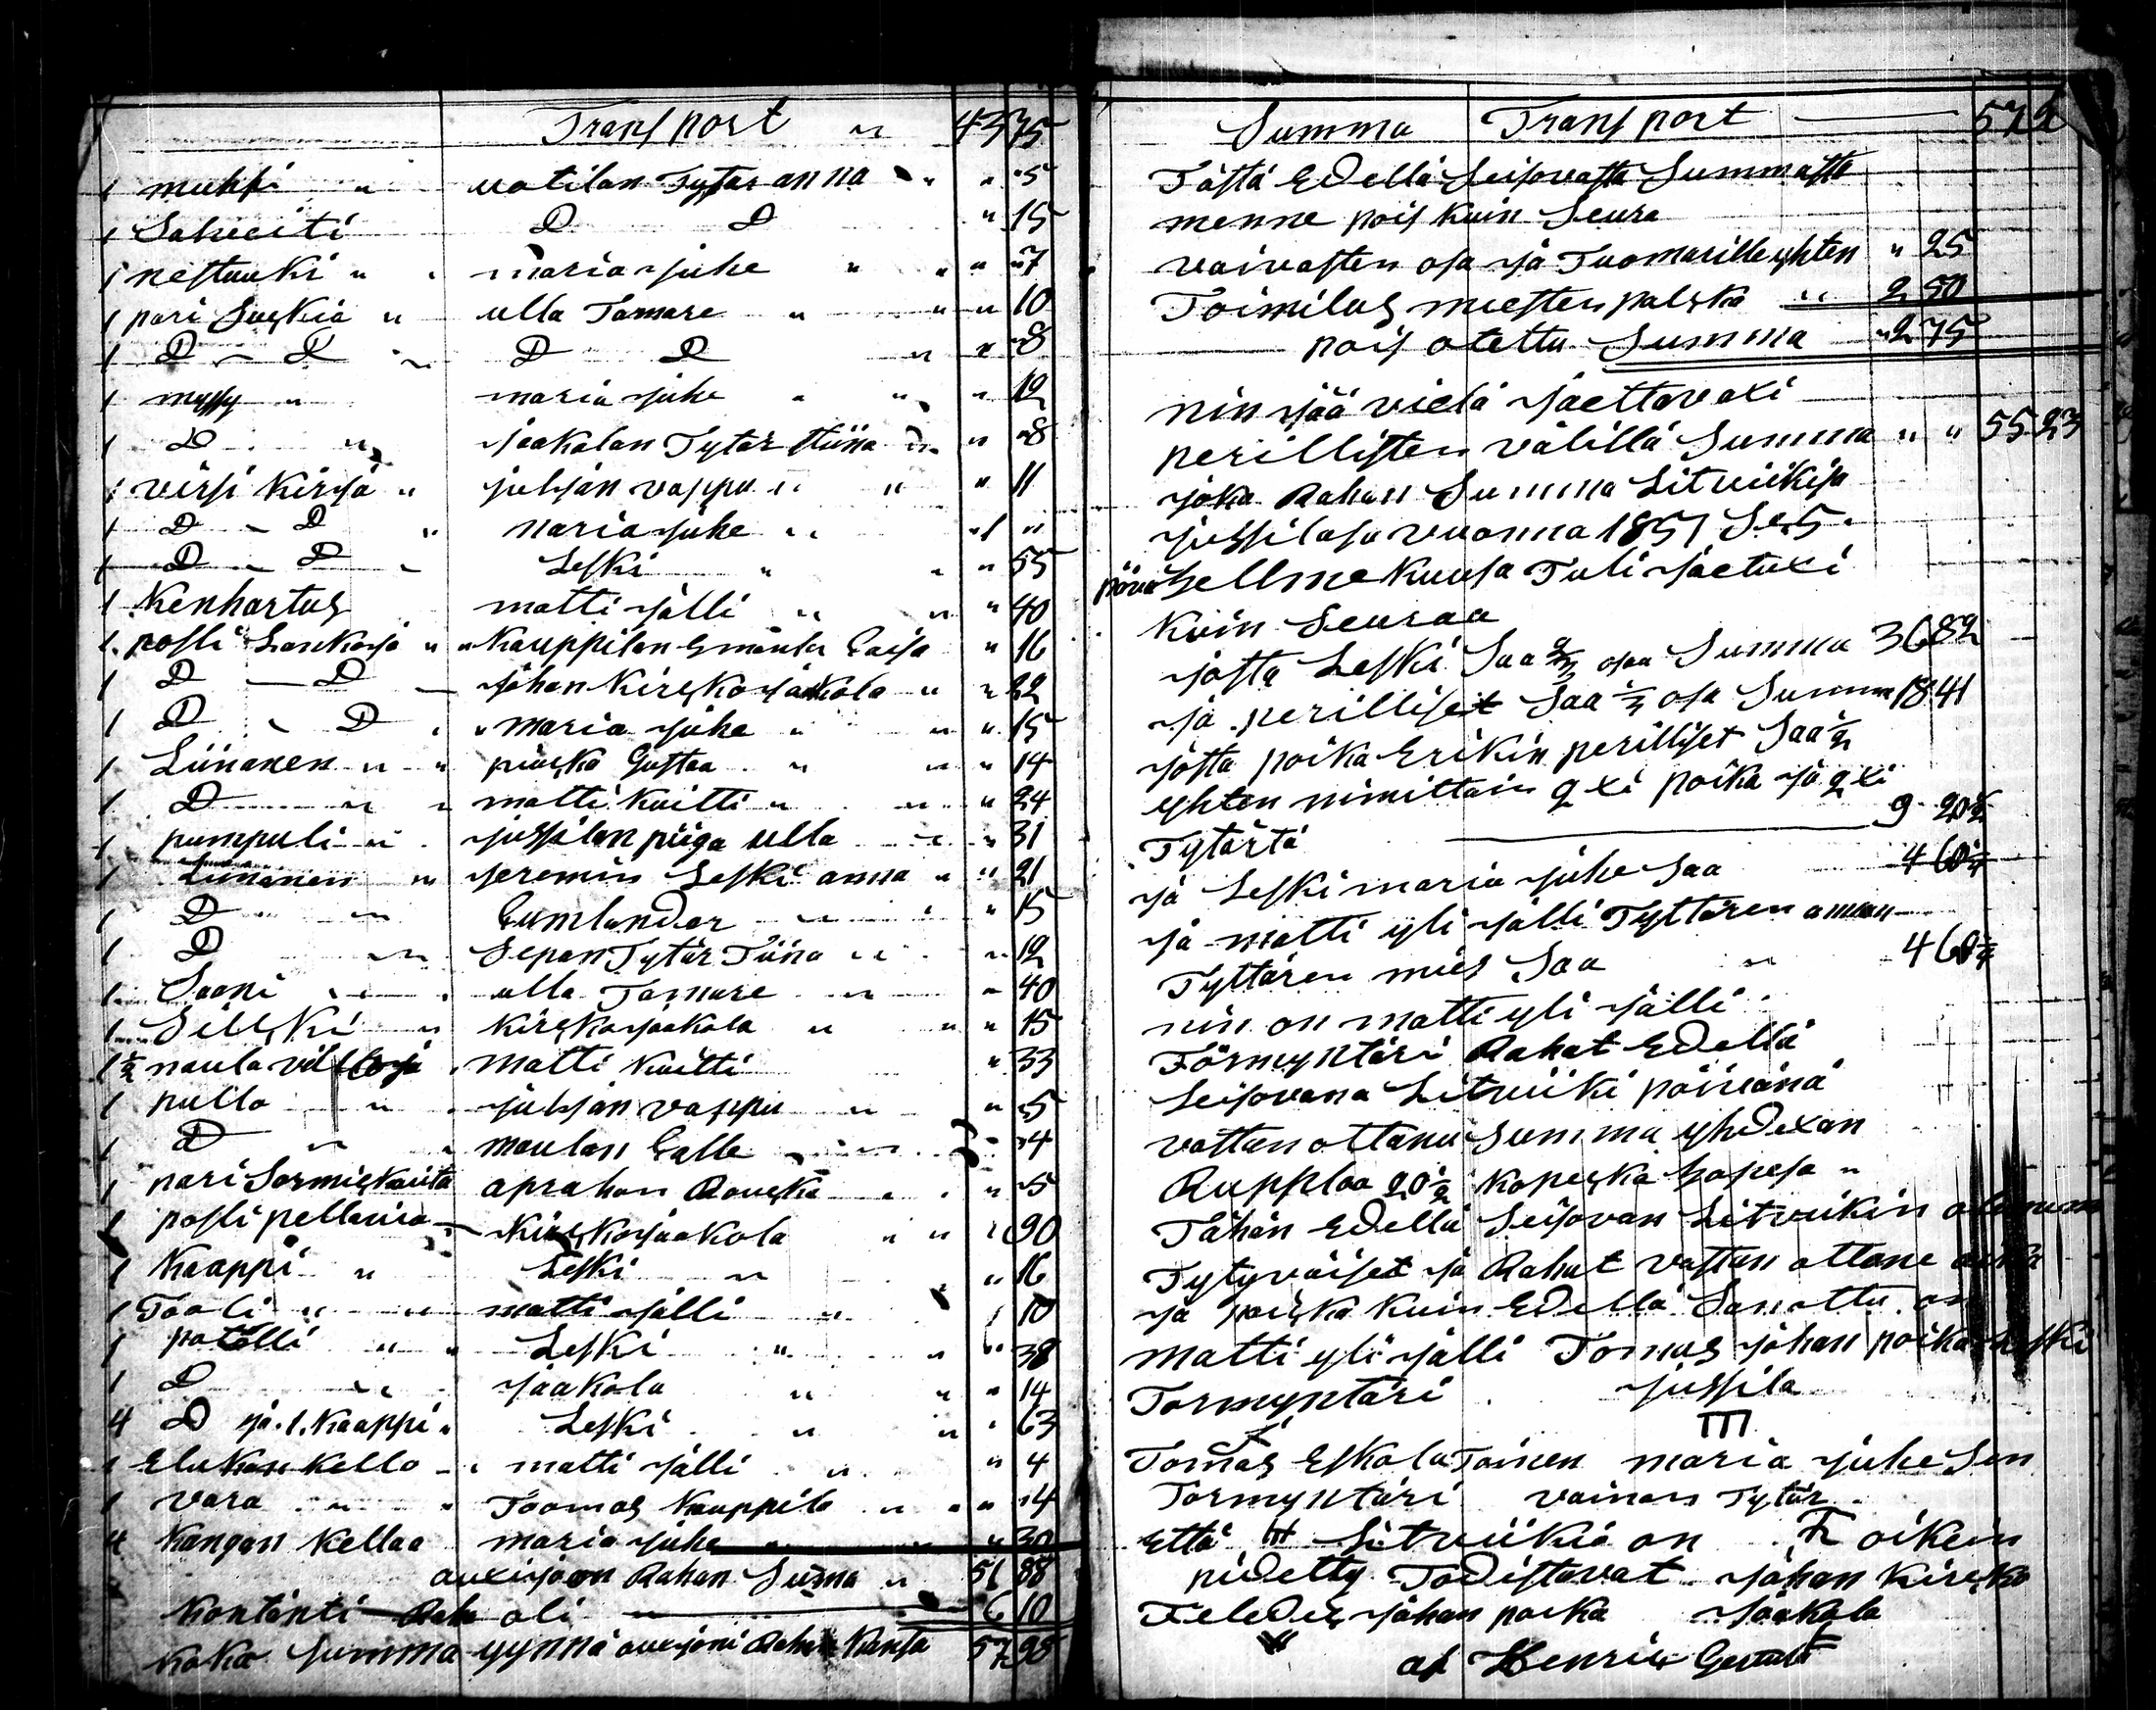 Transport " 43 75
1 mukki " uotilan Tytär anna " " 5
1 Saheeiti D D " 15
1 nestuuki " " maria juhe " " " 7
1 pari Suckia " ulla Tamare " " " 10
1 D - D " D D " " 8
1 myssy " maria juhe " " " 12
1 D " jaakolan Tytär stiina " " 8
1 virsi kirja " juhjan vappu " " " 11
1 D - D " maria juhe " " 1 "
1 D - D " Leski " " " 55
1 Kenhartus matti jälli " " " 40
1 posli Lankoja " " Kauppilan Emäntä Caisa " 16
1 D - D - johan Kircko jaakola " " 22
1 D - D " " maria juhe " " " 15
1 Liinanen " " piucka Gustaa " " " 14
1 D " " matti kuitti " " " 24
1 pumpuli " jussilan piiga ulla " " 31
1 Liinanen " jeremin Leski anna " " 21
1 D " Cumlander " " 15
1 D " Sepan Tytär Tiina " " 12
1 Saani " " ulla Tamare " " 40
1 Silcki " kircko jaakola " " " 15
1½ naula villoja matti Kuitti " 33
1 pullo " juhjan vappu " " 5
1 D " " maulan Calle " " 4
1 pari Sormickaita aprahan Roucka " " " 5
1 posli pellavia - kircko jaakola " " " 90
1 Kaappi " Leski " " " 16
1 Tooli " " matti jälli " " 10
1 potälli " " Leski " " " 38
1 D " jaakola " " " 14
4 D ja 1 Kaappi " Leski " " " 63
" Elukan kello - " matti jälli " " 4
1 vara " " Toomas Kauppila " " " 4
4 Kangan Kelloa maria juhe " " 30
auxijoon Rahan Suma " 51 88
Kontänti Raha oli " 6 10
koko Summa yynnä auxjoni Rahan Kansa 57 98
Summa Transport 57 98
Tästä Edellä Seisovasta Summasta
menne pois kuin Seura
vaivasten osa ja Tuomarille yhten " 25
Toimitus miesten palcka " 2 50
pois otettu Summa " 2 75
nin jää vielä jaettavaxi
perillisten välillä Summa " " 55 23
joka Rahan Summa Litviikisä
jussilasa vuonna 1851 Se 5
päivä hellme kuusa Tuli jaetuxi
kuin Seuraa
josta Leski Saa ⅔ osaa Summa 36 82
ja perilliset Saa ⅓ osa Summa 18 41
josta poika Erikin perilliset Saa ½
yhten nimittäin 2 xi poika ja 2 xi
Tytärtä 9 20½
ja Leski maria juhe Saa 4 60¼
ja matti yli jälli Tyttären annan
Tyttären mies Saa " 4 60¼
nin on matti yli jälli
Förmyntäri Rahat Edellä
Seisovana Litviiki päivänä
vattan ottanu Summa yhdexan
Rupplaa 20½ kopecka hopesa "
Tähän Edellä Seisovan Litviikin olemme
Tytyväiset ja Rahat vastan ottane
ja poicka kuin Edellä Sanottu on
matti yli jälli Tomas johan poika Leski
Formyntäri jussila
Tomas Eskola Toinen maria juhe Sen
Formyntäri vainan Tytär
Että Litviikiä on oikein
pidetty Todistavat johan Kircko
Feleder johan poika jaakola
af Henric Gustaf